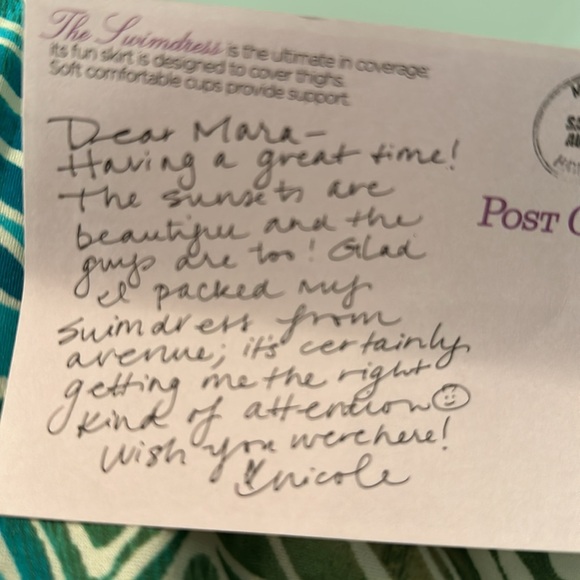 The Swimdress is the ultimate in coverage:
its fun skirt is designed to cover thighs.
Soft comfortable cups provide support.
Dear Mara-
Having a great time!
The sunsets are
beautiful and the
guys are too! Glad
I packed my
swimdress from
avenue; it's certainly
getting me the right
kind of attention
Wish you were here!
Nicole
POST